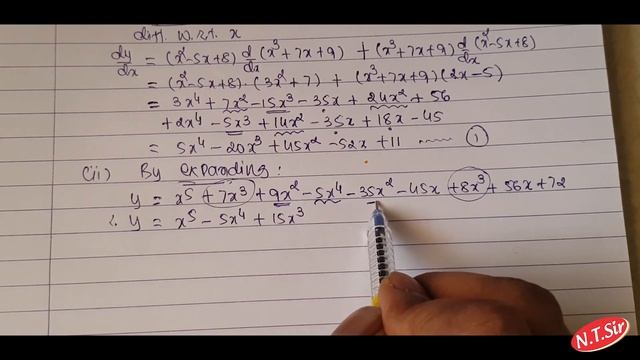 diff. w.r.t. x
dy/dx = (x²-5x+8) d/dx (x³+7x+9) + (x³+7x+9) d/dx (x²-5x+8)
= (x²-5x+8)·(3x²+7) + (x³+7x+9)(2x-5)
= 3x⁴+7x²-15x³-35x+24x²+56
+2x⁴-5x³+14x²-35x+18x-45
= 5x⁴-20x³+45x²-52x+11 ...... ①
(ii) By expanding:
y = x⁵+7x³+9x²-5x⁴-35x²-45x+8x³+56x+72
∴ y = x⁵-5x⁴+15x³
N.T.Sir